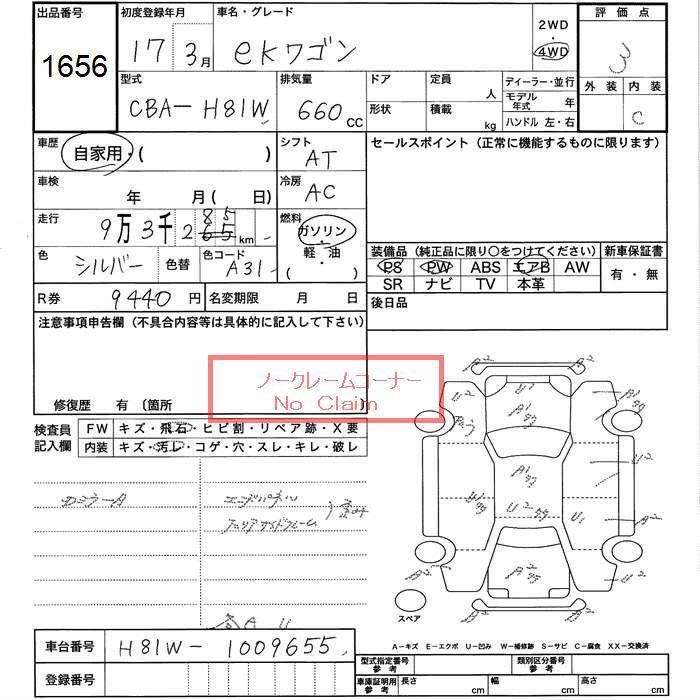 出品番号 初度登録年月 車名・グレード 2WD 評価点
1656 17 3月 eKワゴン 4WD 3
型式 排気量 ドア 定員 人 ディーラー・並行 外装 内装
CBA-H81W 660 CC 形状 積載 kg モデル年式 年 C
ハンドル 左・右
車歴 自家用・( ) シフト AT セールスポイント (正常に機能するものに限ります)
車検 年 月( 日) 冷房 AC
走行 9万3千285 km 燃料 ガソリン・軽油 ( )
色 シルバー 色替 色コード A31
装備品 (純正品に限り○をつけてください) 新車保証書
PS PW ABS エアB AW 有・無
SR ナビ TV 本革
R券 9440円 名変期限 月 日 後日品
注意事項申告欄 (不具合内容等は具体的に記入して下さい)
ノークレームコーナー
No Claim
修復歴 有 〔箇所 〕
検査員記入欄 FW キズ・飛石・ヒビ割・リペア跡・X要
内装 キズ・汚レ・コゲ・穴・スレ・キレ・破レ
エンドパネル
歪み
A2
A2
U2
A1
U2
A2
U1
A2
U2
A2
スペア
A-キズ E-エクボ U-凹み W-補修跡 S-サビ C-腐食 XX-交換済
車台番号 H81W-1009655
登録番号
型式指定番号 参考 類別区分番号 参考
車庫証明用 参考 長さ cm 幅 cm 高さ cm